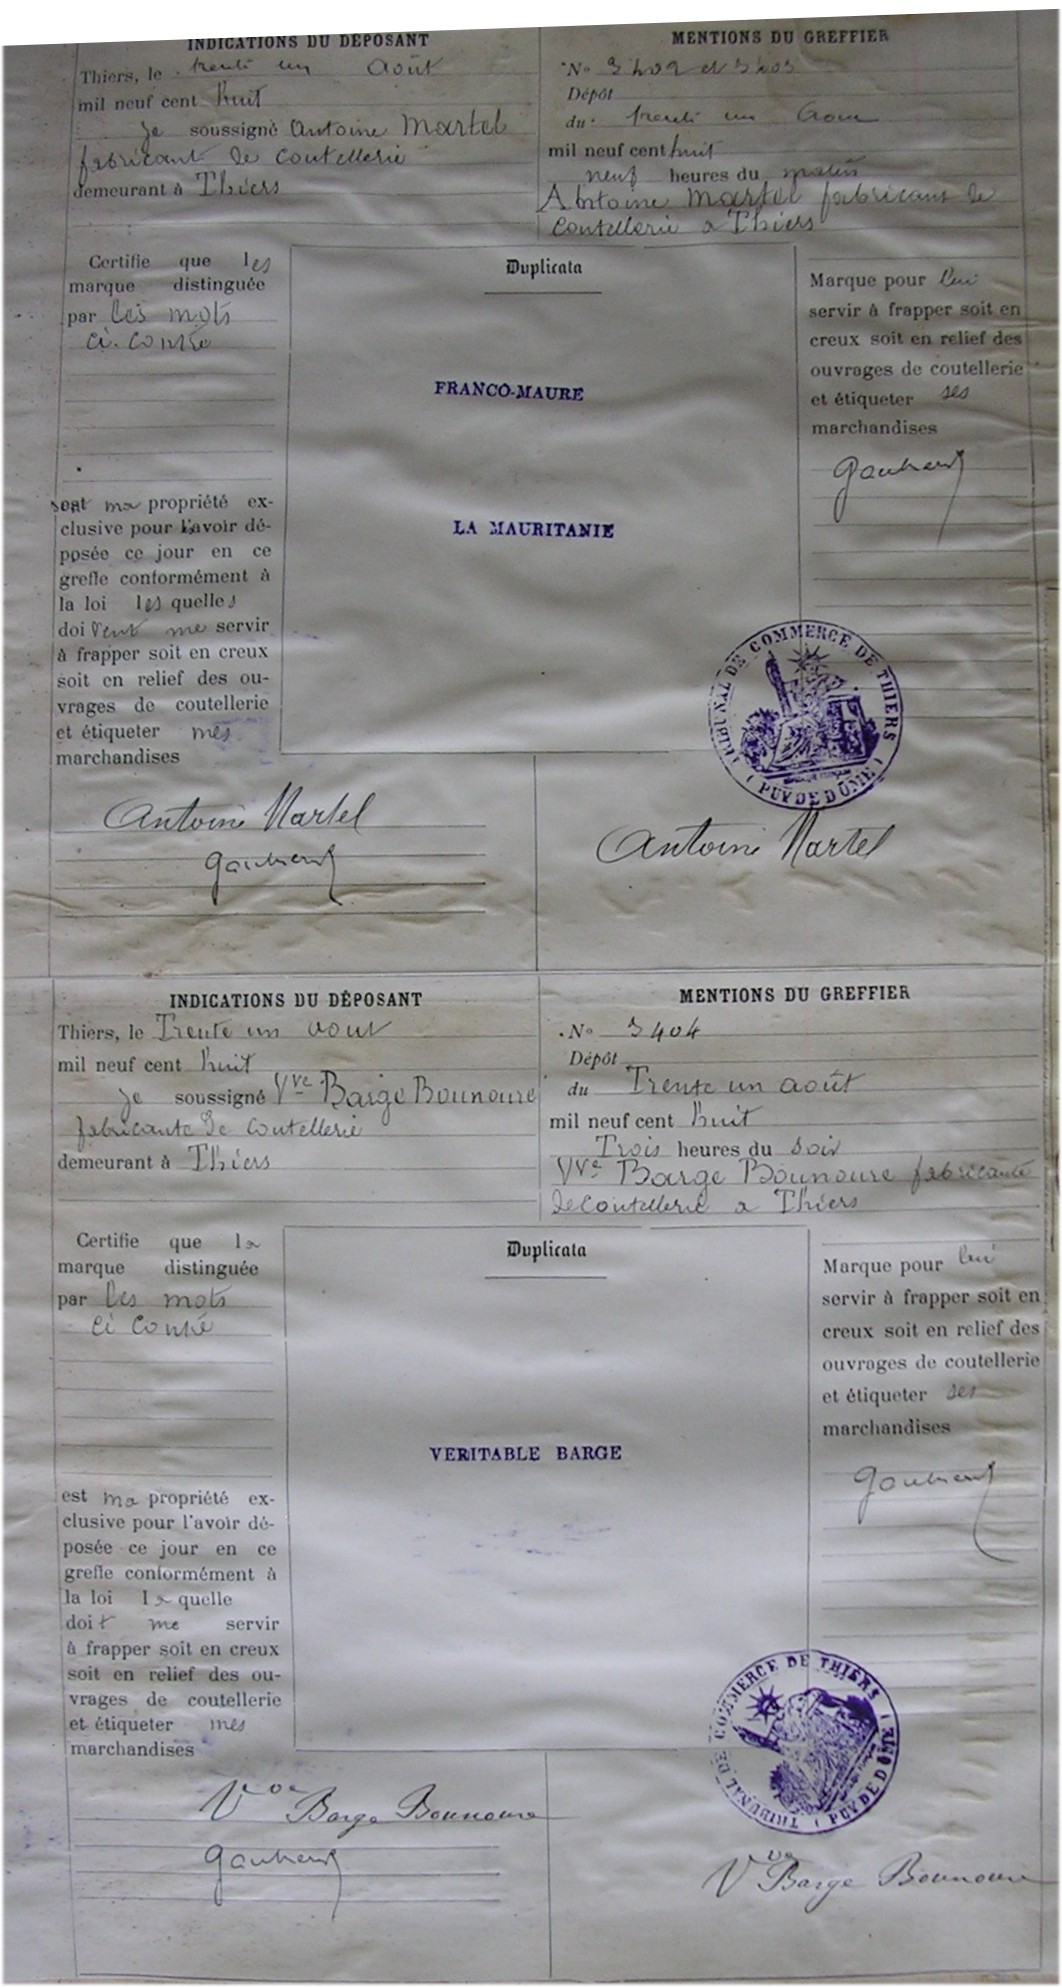 INDICATIONS DU DÉPOSANT
Thiers, le trente un Août
mil neuf cent huit
je soussigné Antoine Martel
fabricant de coutellerie
demeurant à Thiers
MENTIONS DU GREFFIER
No 3402 et 3403
Dépôt
du trente un Aout
mil neuf cent huit
neuf heures du matin
Antoine Martel fabricant de
coutellerie a Thiers
Certifie que les
marque distinguée
par les mots
ci-contre
sont ma propriété ex-
clusive pour l'avoir dé-
posée ce jour en ce
greffe conformément à
la loi lesquelles
doivent me servir
à frapper soit en creux
soit en relief des ou-
vrages de coutellerie
et étiqueter mes
marchandises
Duplicata
FRANCO-MAURE
LA MAURITANIE
Marque pour lui
servir à frapper soit en
creux soit en relief des
ouvrages de coutellerie
et étiqueter ses
marchandises
TRIBUNAL DE COMMERCE DE THIERS
(PUY DE DÔME)
Antoine Martel
Antoine Martel
INDICATIONS DU DÉPOSANT
Thiers, le Trente un aout
mil neuf cent huit
je soussigné Vve Barge Bounoure
fabricante de coutellerie
demeurant à Thiers
MENTIONS DU GREFFIER
No 3404
Dépôt
du Trente un août
mil neuf cent huit
Trois heures du soir
Vve Barge Bounoure fabricante
de coutellerie a Thiers
Certifie que la
marque distinguée
par les mots
ci contre
est ma propriété ex-
clusive pour l'avoir dé-
posée ce jour en ce
greffe conformément à
la loi laquelle
doit me servir
à frapper soit en creux
soit en relief des ou-
vrages de coutellerie
et étiqueter mes
marchandises
Duplicata
VERITABLE BARGE
Marque pour lui
servir à frapper soit en
creux soit en relief des
ouvrages de coutellerie
et étiqueter ses
marchandises
TRIBUNAL DE COMMERCE DE THIERS
(PUY DE DÔME)
Vve Barge Bounoure
Vve Barge Bounoure